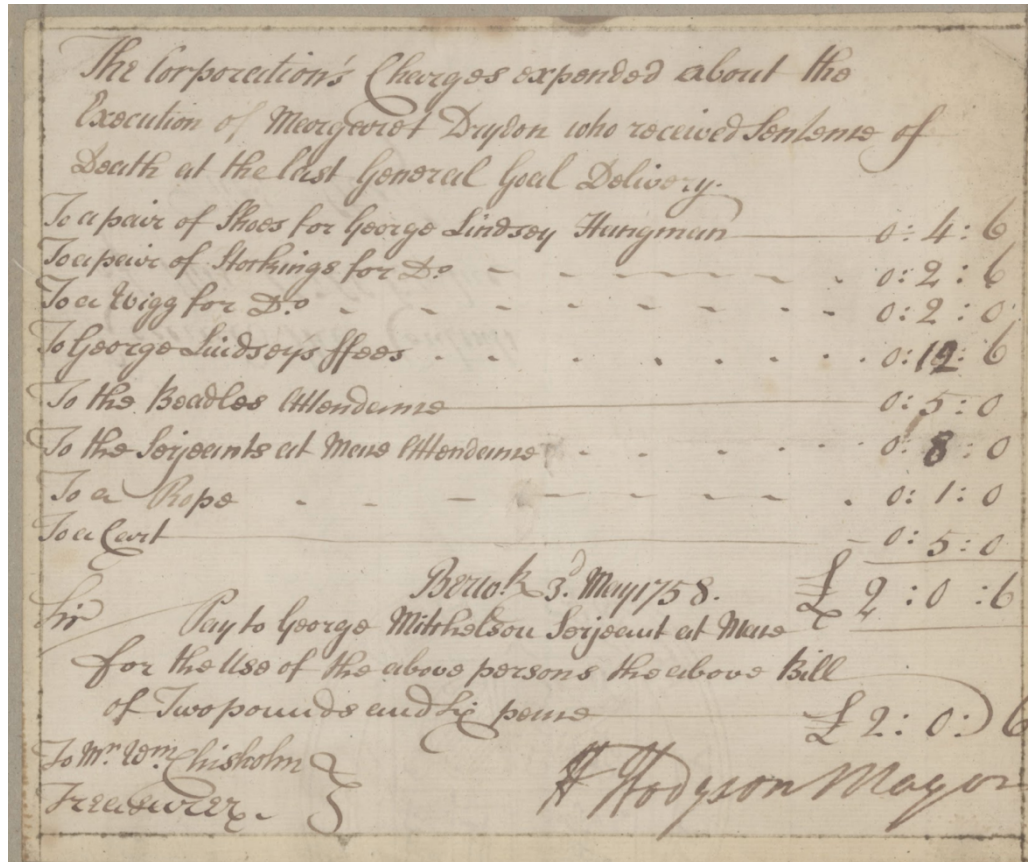 The Corporation's Charges expended about the
Execution of Margaret Drydon who received Sentence of
Death at the last General Goal Delivery.
To a pair of Shoes for George Lindsey Hangman 0: 4: 6
To a pair of Stockings for Do - - - - - - - 0: 2: 6
To a Wigg for Do - - - - - - - - 0: 2: 0
To George Lindseys ffees . . . . . . . 0: 12: 6
To the Beadles Attendance 0: 5: 0
To the Serjeants at Mace Attendance . . . . . 0: 8: 0
To a Rope . - - - - - - . 0: 1: 0
To a Cart 0: 5: 0
Berwk 3d. May 1758. £ 2: 0: 6
Sir Pay to George Mitchelson Serjeant at Mace
for the Use of the above persons the above Bill
of Two pounds and Six pence £ 2: 0: 6
To Mr. Wm. Chisholm
Treasurer.
H Hodgson Mayor